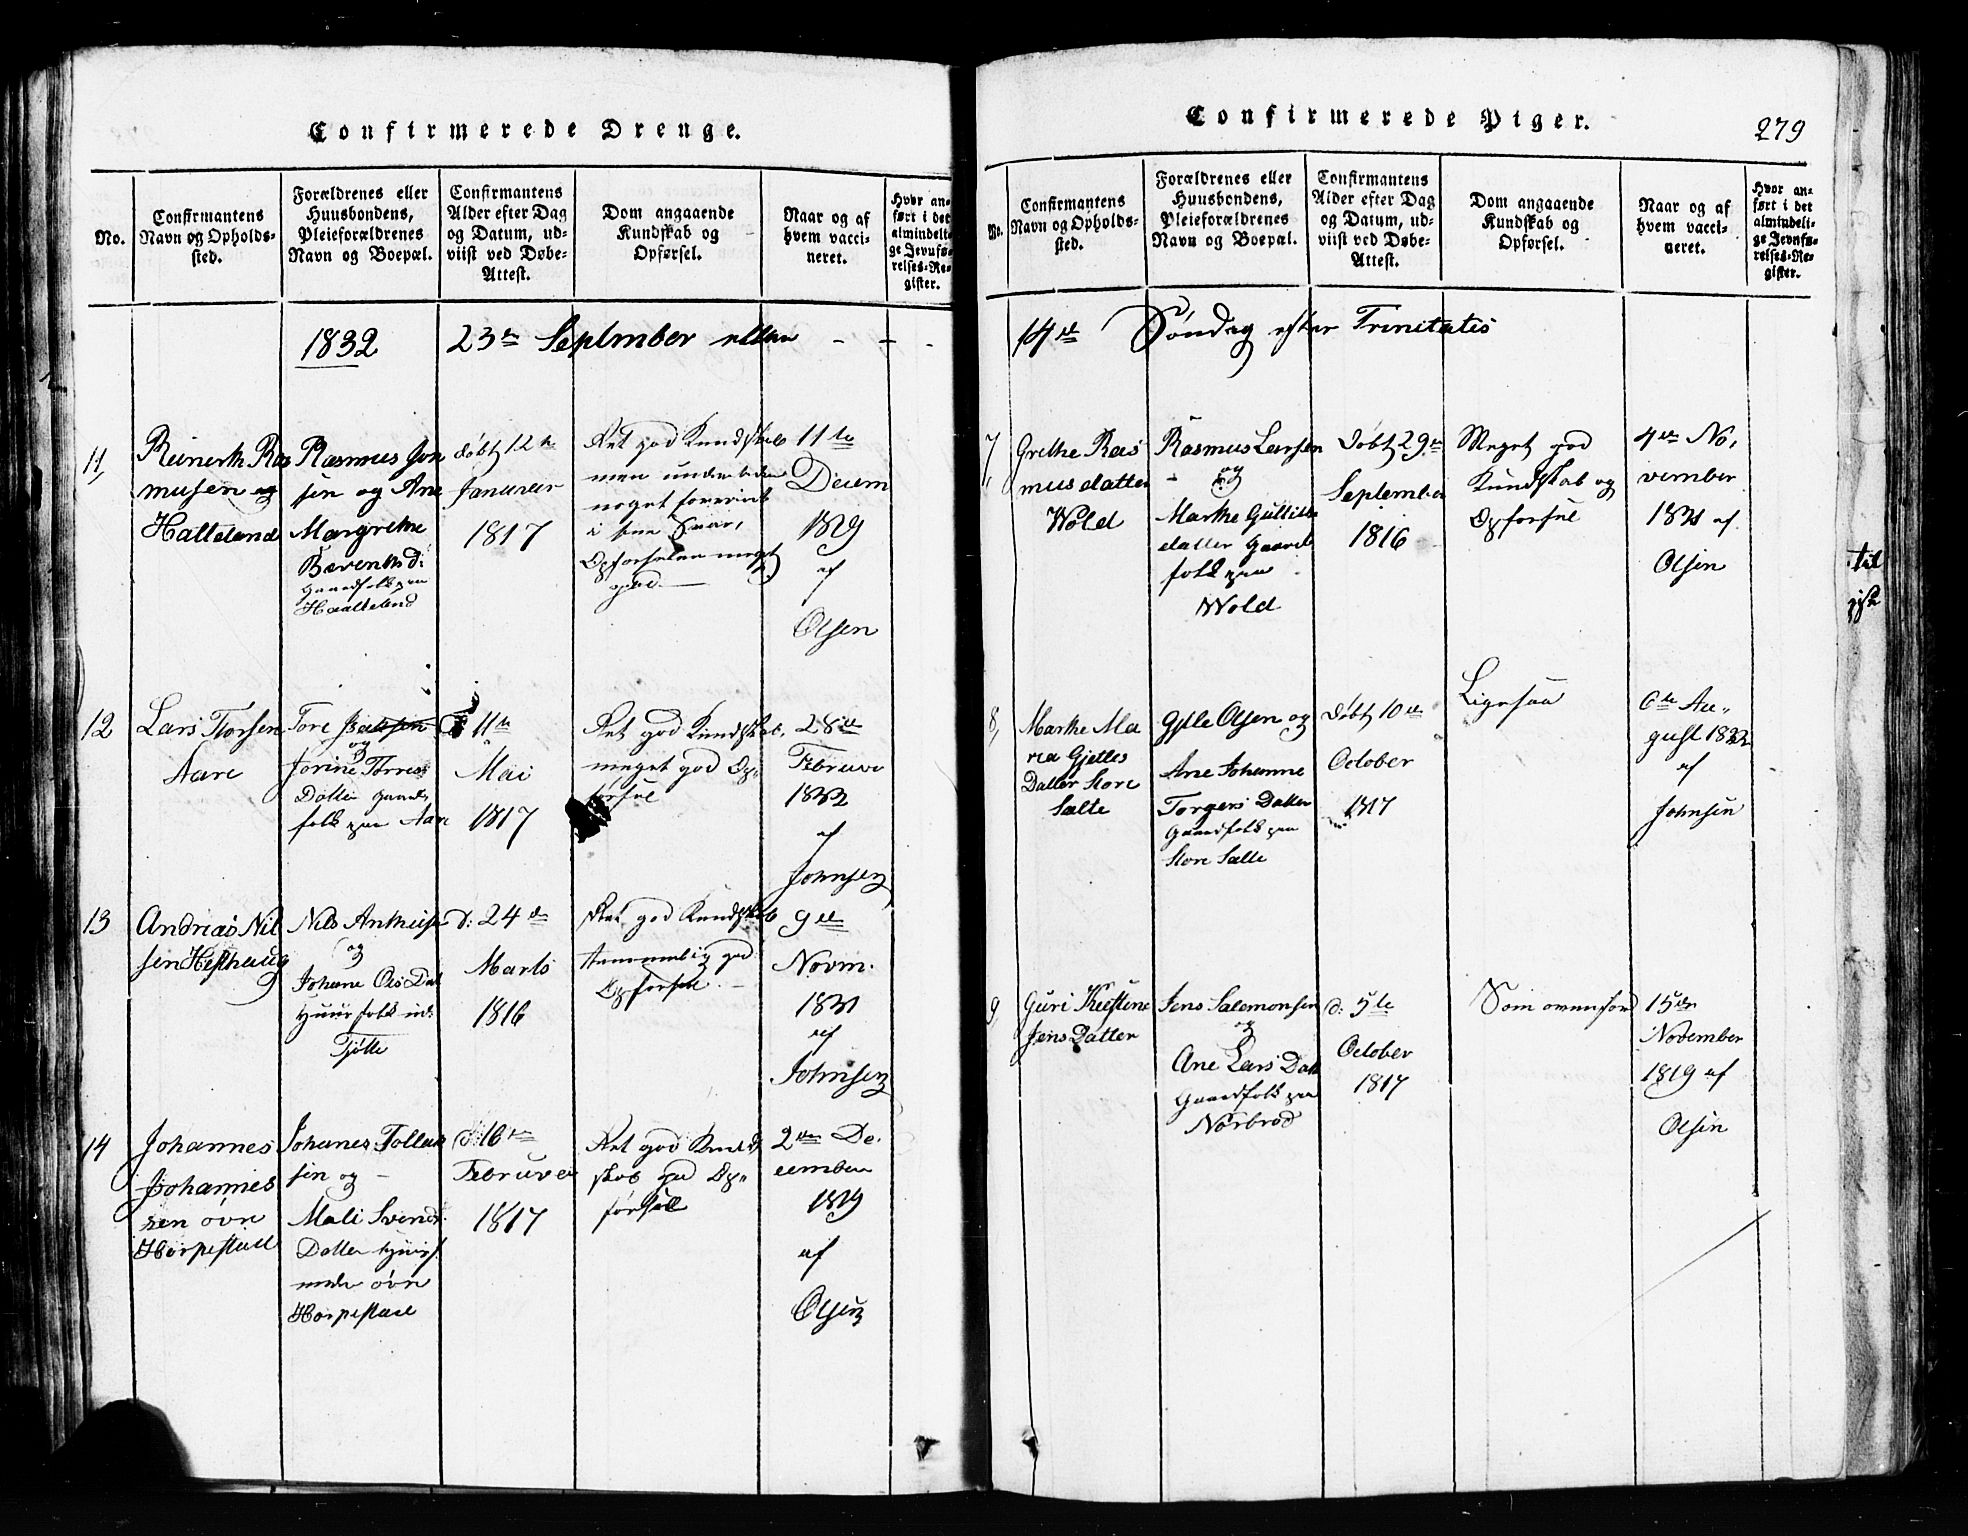 Confirmerede Drenge.
No.
Confirmantens
Navn og Opholds-
sted.
Forældrenes eller
Huusbondens,
Pleieforældrenes
Navn og Boepæl.
Confirmantens
Alder efter Dag
og Datum, ud-
viist ved Døbe-
Attest.
Dom angaaende
Kundskab og
Opførsel.
Naar og af
hvem vacci-
neret.
Hvor an-
ført i det
almindeli-
ge Jevnfø-
relses-Re-
gister.
1832
23de September
11,
Reinerth Ras
musen
Halleland
Rasmus Jon
sen og Ane
Margrethe
Gaardfolk paa
Haalleland
døbt 12te
Januar
1817
Ret god Kundskab
men
noget
i sine Svar,
Opførselen meget
god.
11te
1819
af
Olsen
12
Lars Torsen
Aare
Tore
og
Jorine Torres
Datter Gaard
folk paa Aare
11te
Mai
1817
Ret god Kundskab,
meget god Op-
førsel
28de
Februar
1832
af
Johnsen
13
Andreas Nil
sen Hesthaug
Nils
og
Johane Ols Dat
Huusfolk
Tjøtte
d: 24de
Marts
1816
Ret god Kundskab
temmelig god
Opførsel.
9de
Novm.
1831
af
Johnsen
14
Johannes
Johannes
sen øvre
Horpestad
Johanes Tollak
sen og
Mali Svends
Datter Huusf.
øvre
Horpestad
d: 16de
Februar
1817
Ret god Kund
skab god Op-
førsel
2den De-
cember
1819
af
Olsen
Confirmerede Piger.
279
No.
Confirmantens
Navn og Opholds-
sted.
Forældrenes eller
Huusbondens,
Pleieforældrenes
Navn og Boepæl.
Confirmantens
Alder efter Dag
og Datum, ud-
viist ved Døbe-
Attest.
Dom angaaende
Kundskab og
Opførsel.
Naar og af
hvem vacci-
neret.
Hvor an-
ført i det
almindeli-
ge Jevnfø-
relses-Re-
gister.
14de Søndag efter Trinitatis
7,
Grethe Ras
musdatter
Wold
Rasmus Larsen
og
Marthe
datter Gaard
folk paa
Wold
Døbt 29de
September
1816
Meget god
Kundskab og
Opførsel
4de No-
vember
1831 af
Olsen
8,
Marthe Ma
ria Gjelles
Datter Store
Salte
Gjelle Olsen og
Ane Johanne
Torgers Datter
Gaardfolk paa
Store Salte
døbt 10de
October
1817
Ligesaa
6te Au-
gust 1832
af
Johnsen
9,
Guri Kirstine
Jens Datter
Jens Salemonsen
og
Ane Lars Datt
Gaardfolk paa
Norbrod
d: 5te
October
1817
Som ovenfor
15de
November
1819 af
Olsen
til